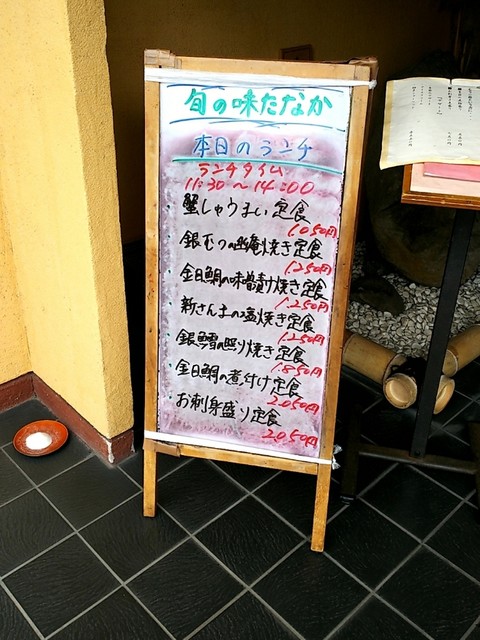 旬の味たなか
本日のランチ
ランチタイム
11:30～14:00
蟹しゅうまい定食
1.050円
銀むつの幽庵焼き定食
1.250円
金目鯛の味噌漬け焼き定食
1.250円
新さんまの塩焼き定食
1.250円
銀鱈の照り焼き定食
1.850円
金目鯛の煮付け定食
2.050円
お刺身盛り定食
2.050円